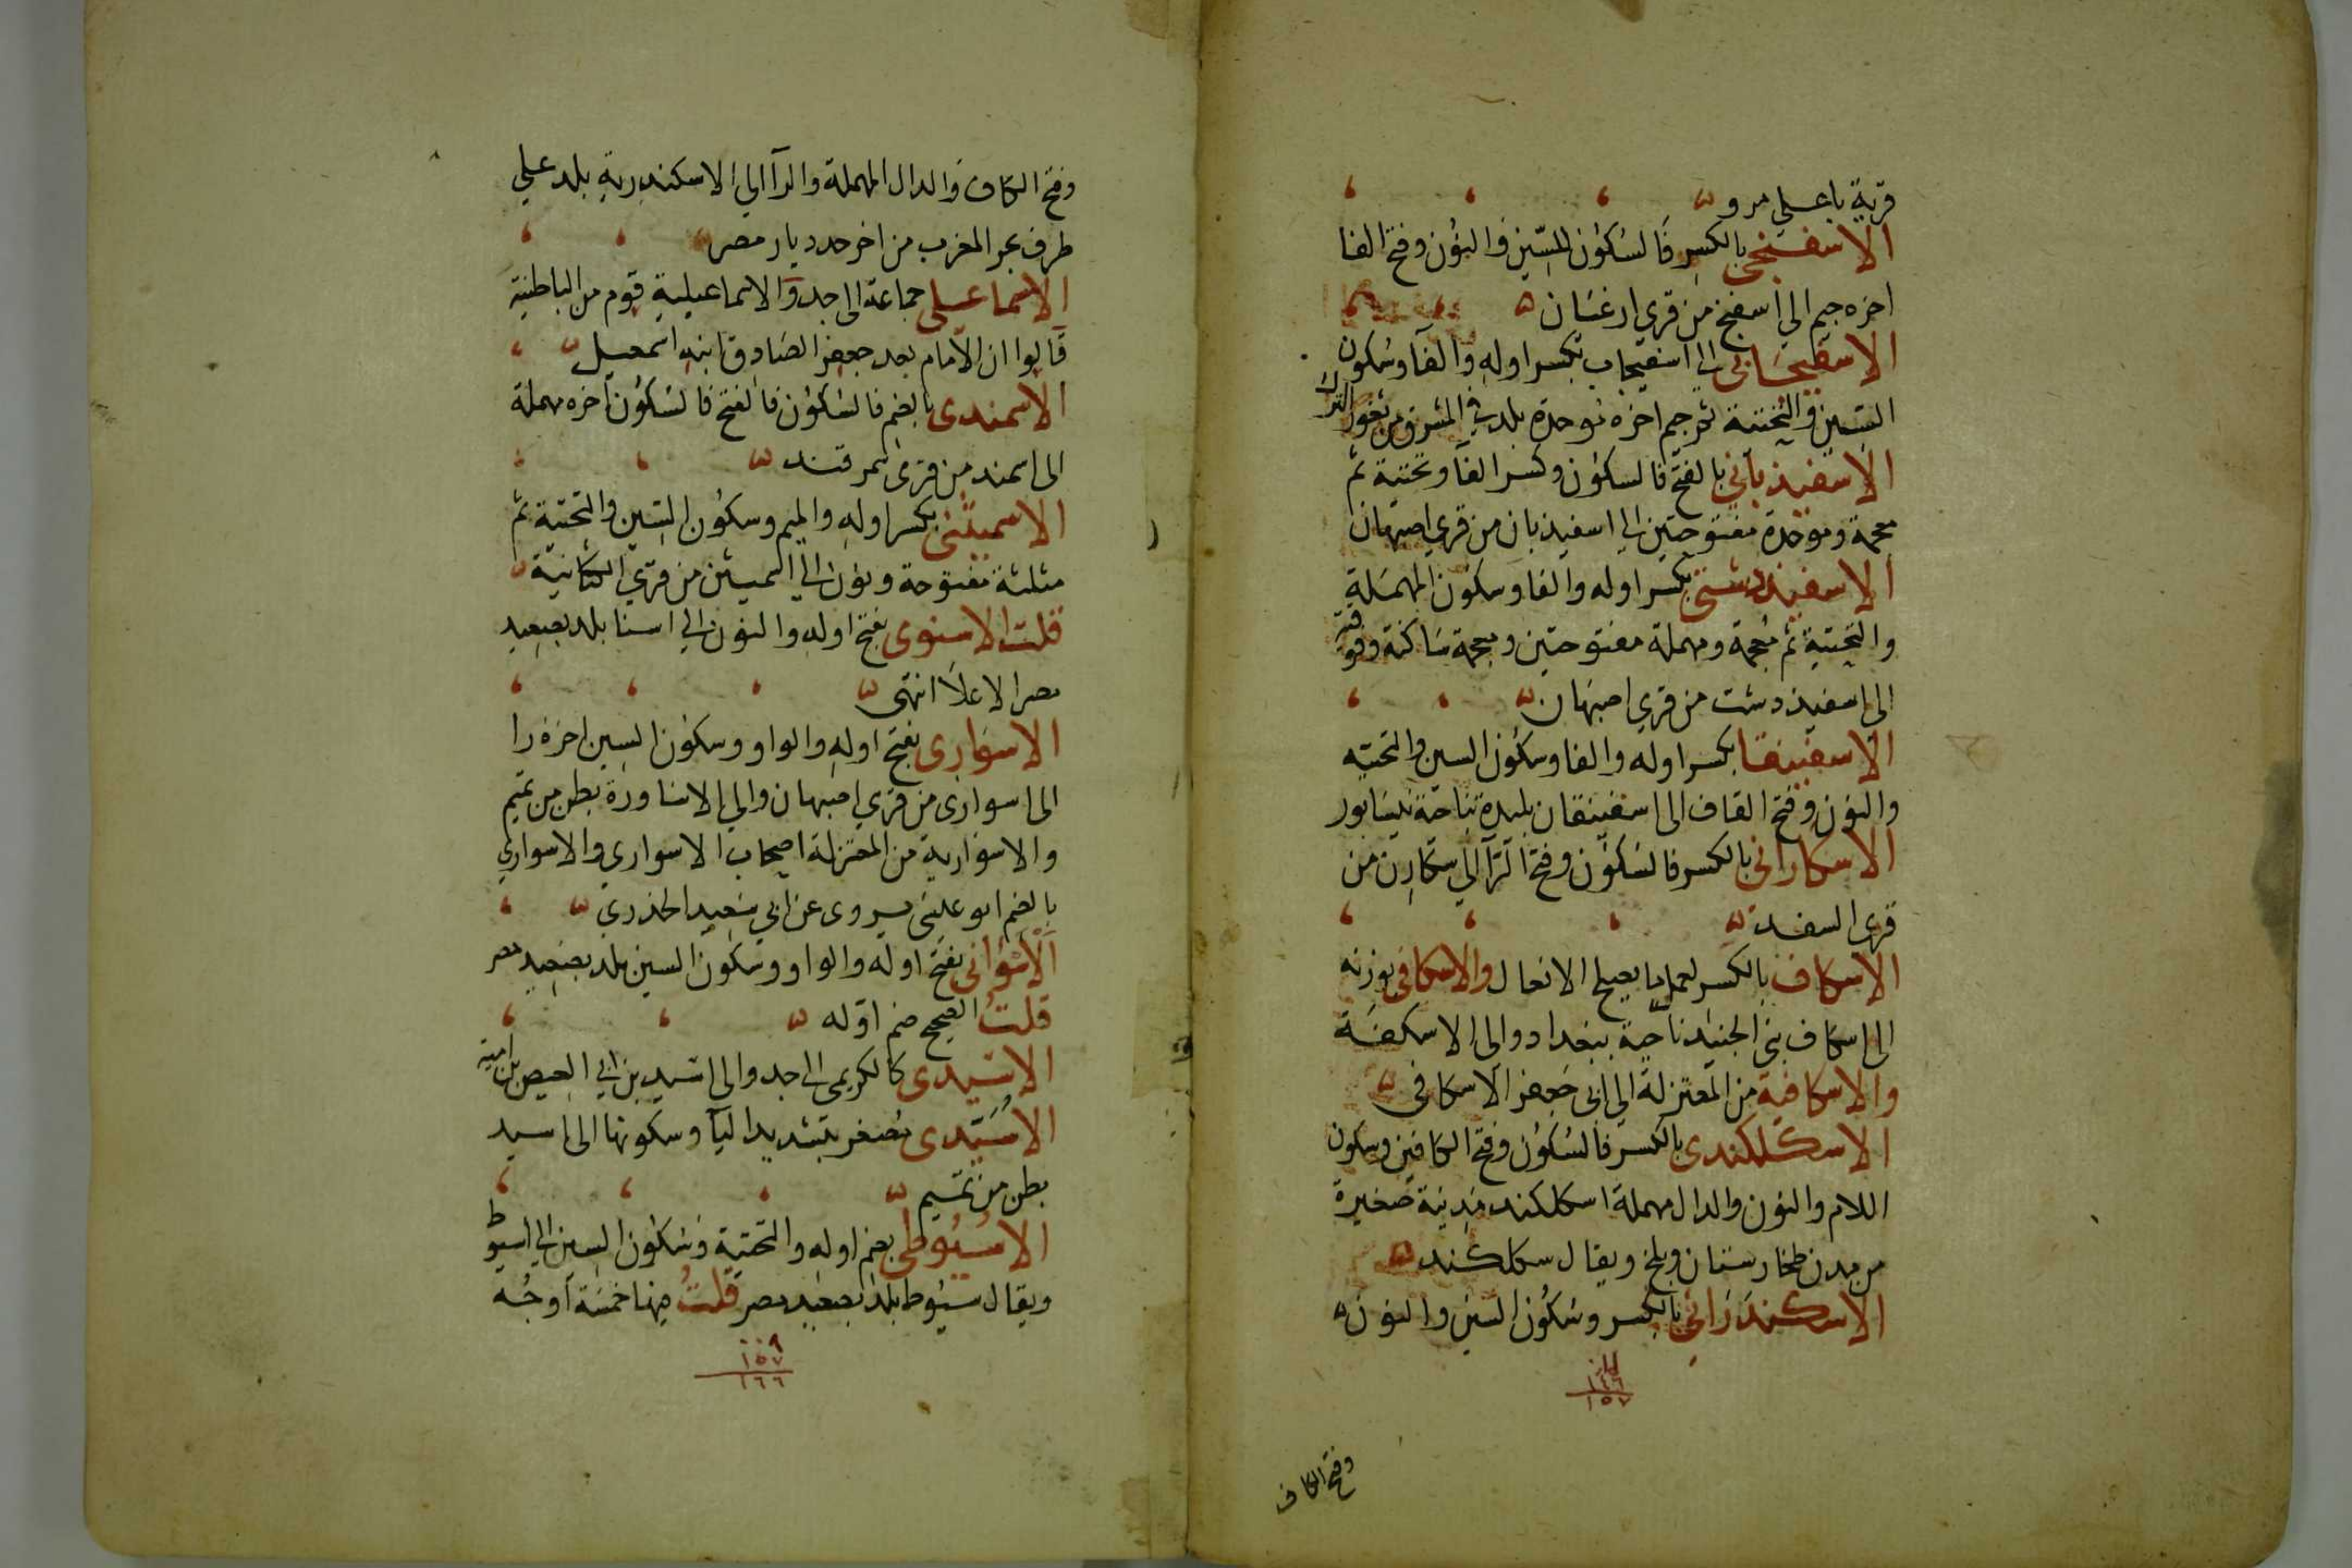 قرية باعلي مرو
الاسفنجي بالكسر فالسكون للسين والنون وفتح الفا
اخره جيم الي اسفنج من قري ارغسان
الاسفيجابي الي اسفيجاب بكسر اوله والفا وسكون
السين والتحتية ثم جيم اخره موحدة بلد في المشرق من ثغور الترك
الاسفيذباني بالفتح فالسكون وكسر الفا وتحتية ثم
معجمة وموحدة مفتوحتين الي اسفيذبان من قري اصبهان
الاسفيذدشتي بكسر اوله والفا وسكون المهملة
والتحتية ثم معجمة ومهملة مفتوحتين ومعجمة ساكنة وفوقية
الى اسفيذدشت من قري اصبهان
الاسفينقا بكسر اوله والفا وسكون السين والتحتيه
والنون وفتح القاف الى اسفينقان بليدة بناحية نيسابور
الاسكاراني بالكسر فالسكون وفتح الرآ الي سكارن من
قرى السغد
الاسكاف بالكسر لعمل ما يصلح الانعال والاسكافي بوزنه
الى اسكاف بني الجنيد ناحية ببغداد والى الاسكفة
والاسكافية من المعتزلة الى ابى جعفر الاسكافى
الاسكلكندى بالكسر فالسكون وفتح الكافين وسكون
اللام والنون والدال مهملة اسكلكند مدينة صغيرة
من مدن طخارستان وبلخ ويقال سكلكند
الاسكندراني بالكسر وسكون السين والنون
وفتح الكاف
وفتح الكاف والدال المهملة والرآ الي الاسكندرية بلد علي
طرف بحر المغرب من اخر حد ديار مصر
الاسماعيلي جماعة الى جد والاسماعيلية قوم من الباطنية
قالوا ان الامام بعد جعفر الصادق ابنه اسمعيل
الاسمندى بالضم فالسكون فالفتح فالسكون اخره مهملة
الى اسمند من قرى سمرقند
الاسميثنى بكسر اوله والميم وسكون السين والتحتية ثم
مثلثة مفتوحة ونون الي اسميثن من قري الكثانية
قلت الاسنوى بفتح اوله والنون الي اسنا بلد بصعيد
مصر الاعلا انتهى
الاسوارى بفتح اوله والواو وسكون السين اخره را
الى اسوارى من قري اصبهان والي الاساورة بطن من تميم
والاسوارية من المعتزلة اصحاب الاسواري والاسواري
بالضم ابو عيسى يروى عن ابي سعيد الخدري
الاسواني بفتح اوله والواو وسكون السين بلد بصعيد مصر
قلت الصحيح ضم اوله
الاسيدى كالكريمى الى جد والى اسيد بن ابي العيص بن امية
الاسيدى مصغر بتشديد اليآ وسكونها الى اسيد
بطن من تميم
الاسيوطي بضم اوله والتحتية وسكون السين الي اسيوط
ويقال سيوط بلد بصعيد مصر قلت فيها خمسة اوجه